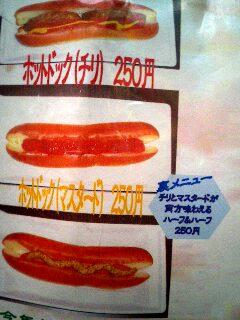 ホットドック(チリ) 250円
ホットドック(マスタード) 250円
裏メニュー
チリとマスタードが
両方味わえる
ハーフ&ハーフ
250円